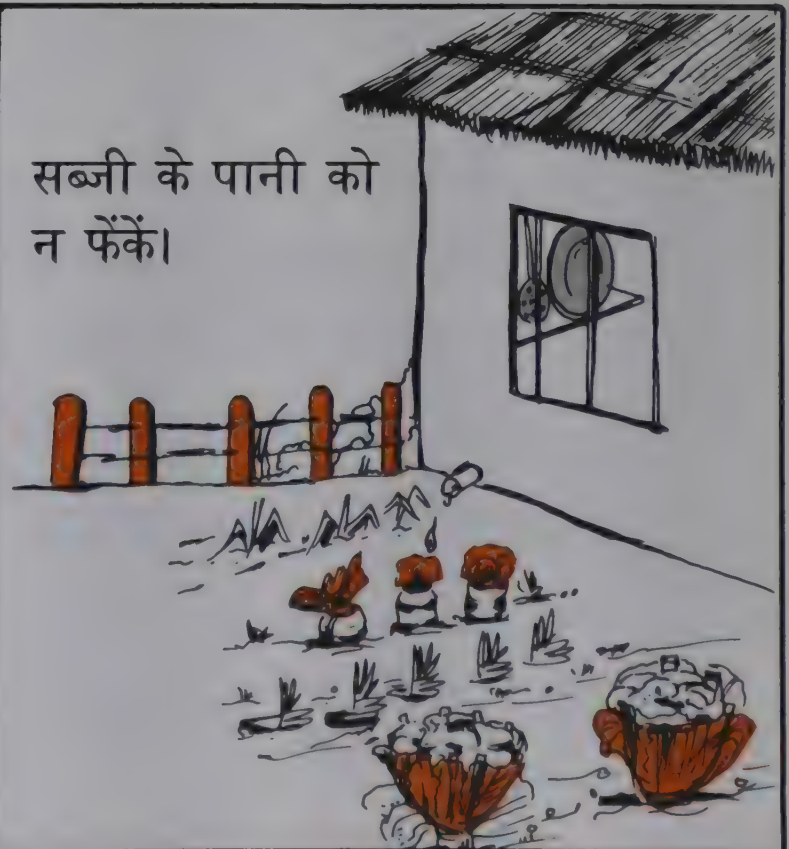 सब्जी के पानी को
न फेंकें।